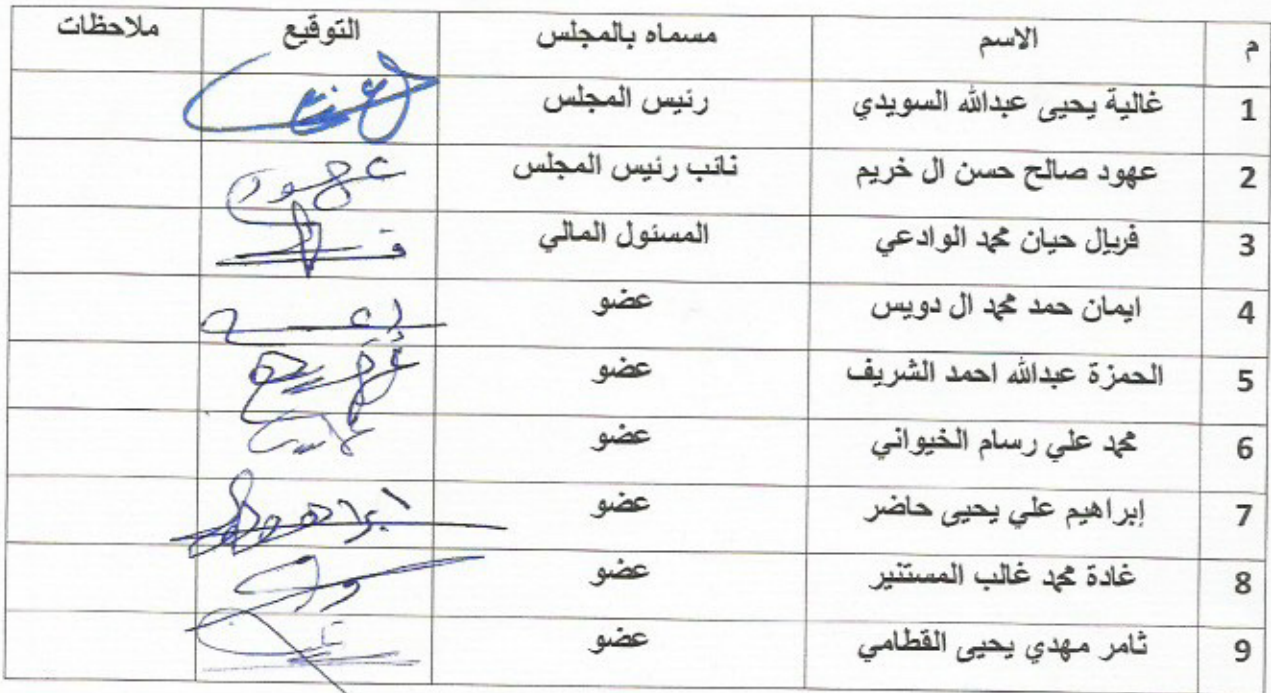 م الاسم مسماه بالمجلس التوقيع ملاحظات
1 غالية يحيى عبدالله السويدي رئيس المجلس
2 عهود صالح حسن ال خريم نائب رئيس المجلس عهود
3 فريال حيان محمد الوادعي المسئول المالي
4 ايمان حمد محمد ال دويس عضو
5 الحمزة عبدالله احمد الشريف عضو
6 محمد علي رسام الخيواني عضو
7 إبراهيم علي يحيى حاضر عضو
8 غادة محمد غالب المستنير عضو
9 ثامر مهدي يحيى القطامي عضو